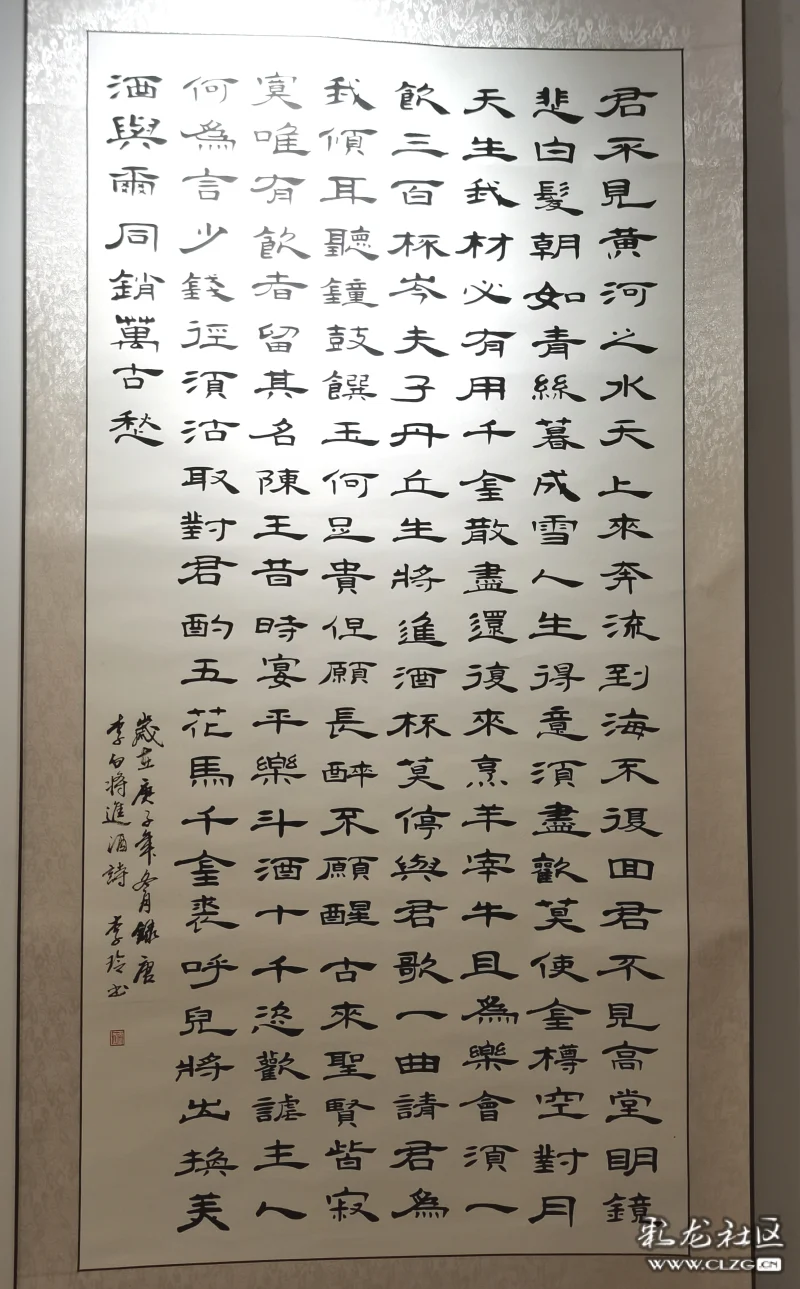 君不見黃河之水天上來奔流到海不復回君不見高堂明鏡
悲白髮朝如青絲暮成雪人生得意須盡歡莫使金樽空對月
天生我材必有用千金散盡還復來烹羊宰牛且爲樂會須一
飲三百杯岑夫子丹丘生將進酒杯莫停與君歌一曲請君爲
我傾耳聽鐘鼓饌玉何足貴但願長醉不願醒古來聖賢皆寂
寞唯有飲者留其名陳王昔時宴平樂斗酒十千恣歡謔主人
何爲言少錢徑須沽取對君酌五花馬千金裘呼兒將出換美
酒與爾同銷萬古愁
歲在庚子年冬月錄唐
李白將進酒詩 李玲书
彩龙社区
WWW.CLZG.CN